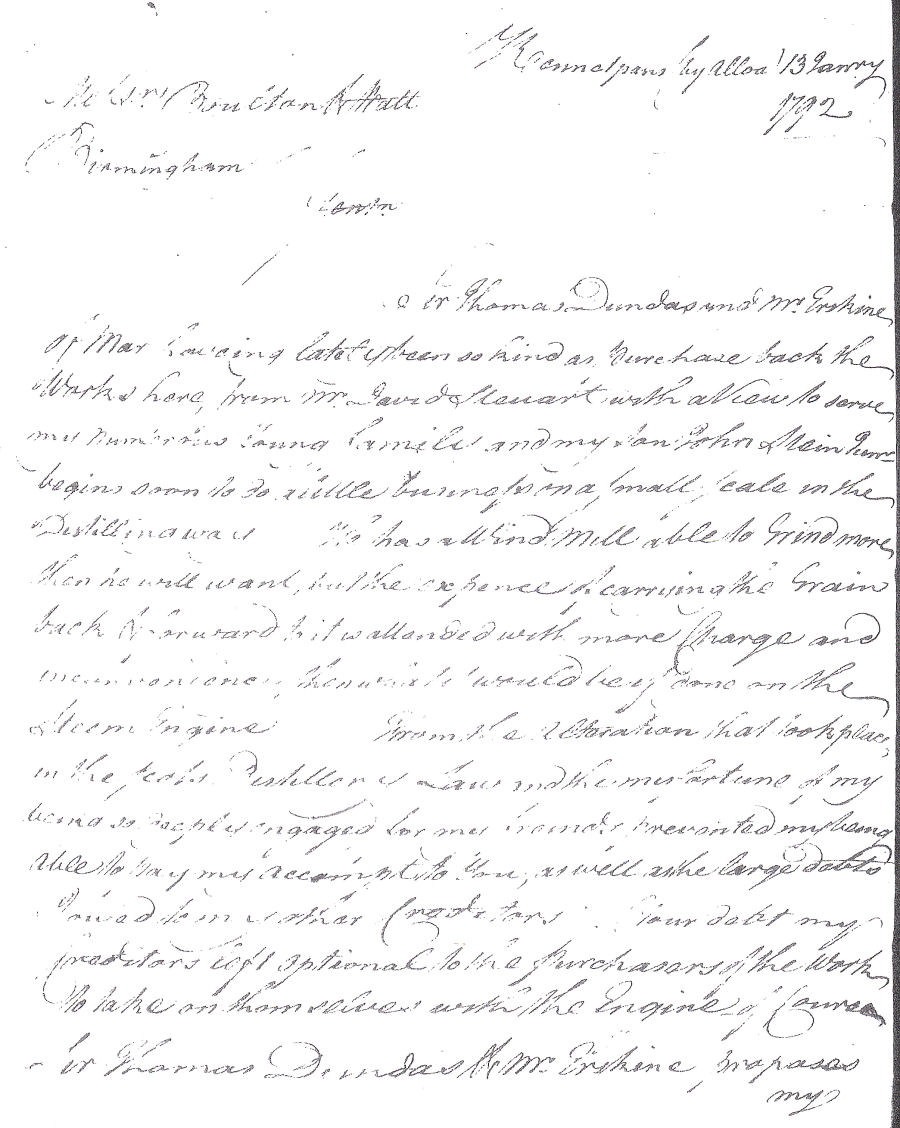 Kennetpans by Alloa 13 Janry
1792
Messrs Boulton & Watt
Birmingham
Gentn
Sir Thomas Dundas and Mr. Erskine
of Mar haveing lately been so kind as Purchase back the
Works here, from Mr. David Steuart with a View to serve
my numerous Young Family and my Son John Stein Junr
begins soon to do a little business on a small scale in the
Distilling way He has a Wind Mill able to Grind more
then he will want, but the expence of carrying the Grain
back & forward to it is attended with more Charge and
inconveniency then what it would be if done on the
Steem Engine From the alteration that took place
in the Scots Distillery Law and the misfortune of my
being so deeply engaged for my friends prevented my being
able to pay my accompt to You, as well as the large debts
I owed to my other Creditors Your debt my
Creditors left optional to the Purchasers of the Work
to take on themselves with the Engine of Course
Sir Thomas Dundas & Mr. Erskine proposes
my